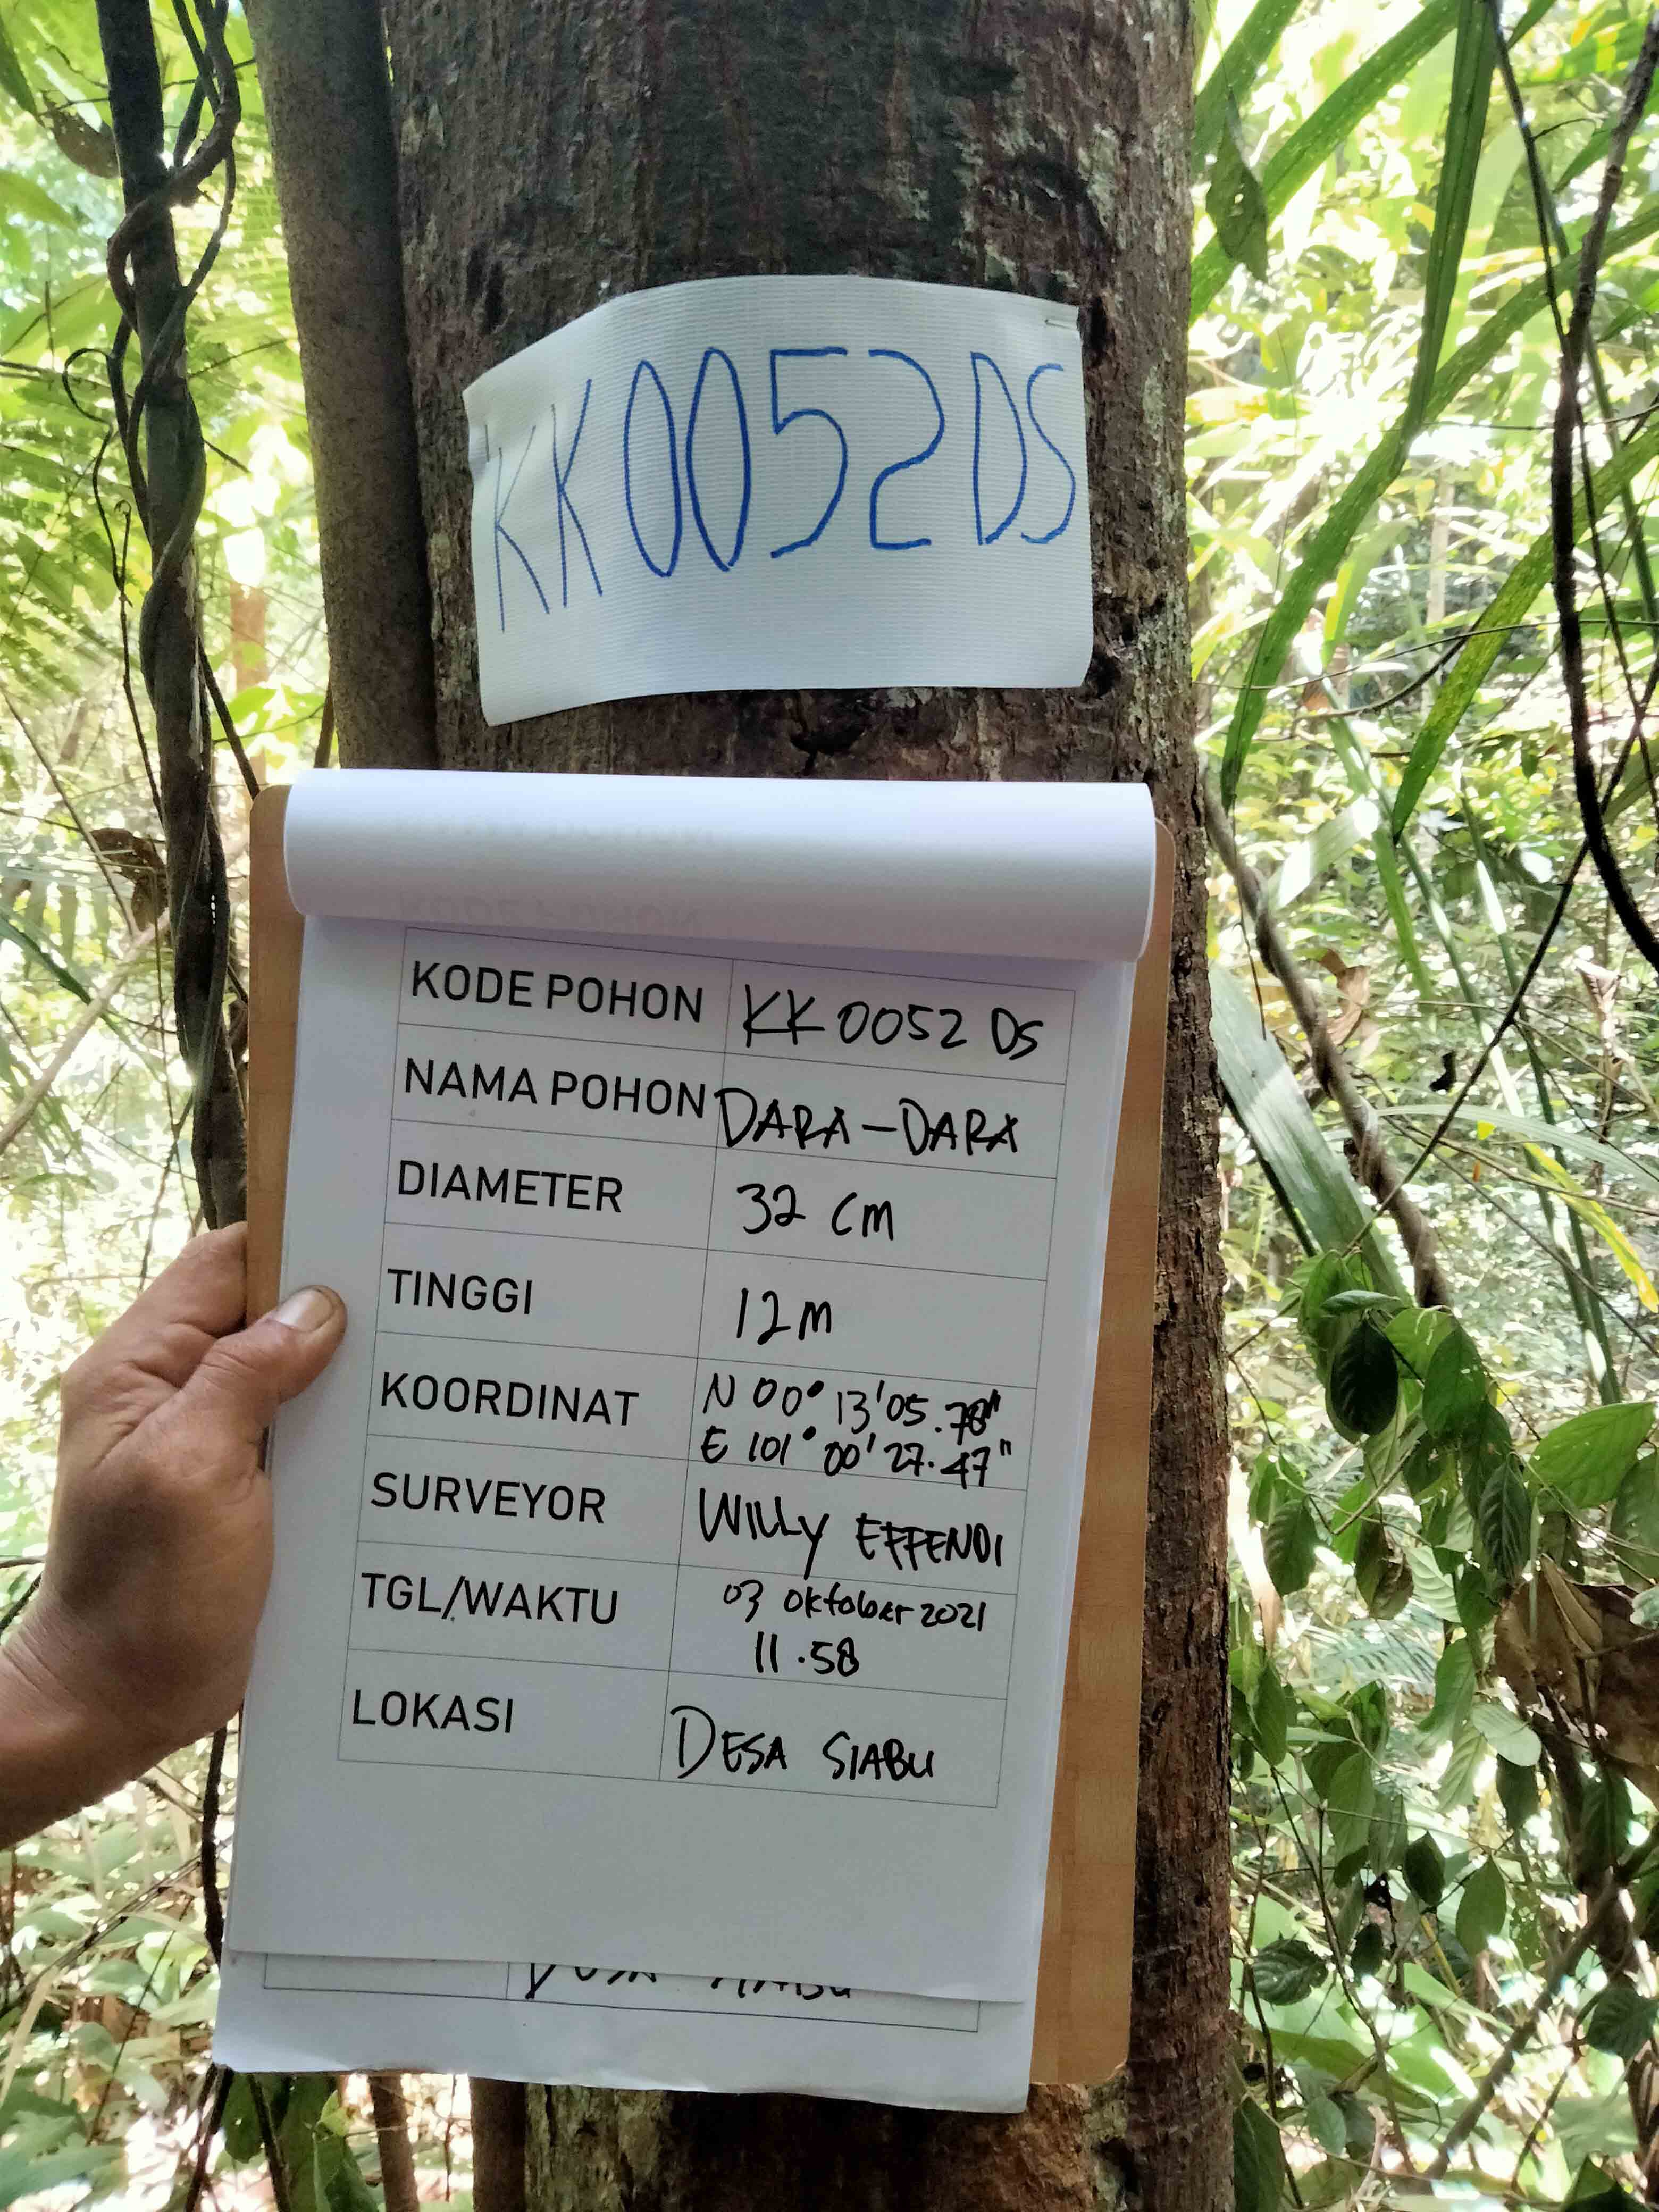 KK0052DS
KODE POHON KK 0052 DS
NAMA POHON DARA-DARA
DIAMETER 32 cm
TINGGI 12 m
KOORDINAT N 00° 13' 05.78"
E 101° 00' 27.47"
SURVEYOR WILLY EFFENDI
TGL/WAKTU 03 Oktober 2021
11.58
LOKASI DESA SIABU